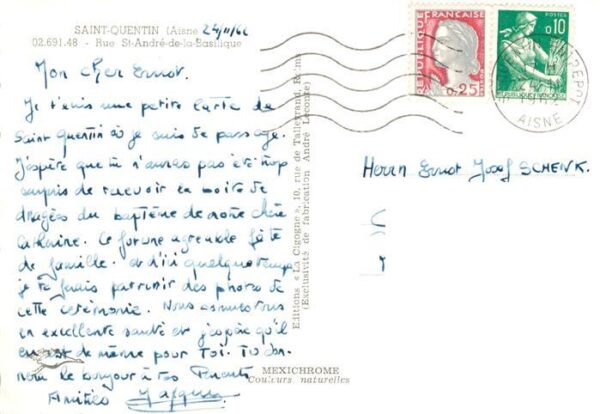 SAINT-QUENTIN (Aisne
24/11/62
02.691.48 - Rue St-André-de-la-Basilique
Mon Cher Ernst.
Je t'envoie une petite carte de
Saint Quentin où je suis de passage.
J'espère que tu n'auras pas été trop
surpris de recevoir la boîte de
dragées du baptême de notre chère
Ce fut une agréable fête
de famille. et d'ici quelque temps
je te ferais parvenir des photos de
cette cérémonie. Nous sommes tous
en excellente santé et j'espère qu'il
en est de même pour Toi. Tu
le bonjour à tes Parents
Amitiés
Editions « La Cigogne », 10, rue de Talleyrand, Reims
(Exclusivité de fabrication André Leconte)
MEXICHROME
Couleurs naturelles
REPUBLIQUE
FRANÇAISE
0,25
POSTES
0,10
AISNE
Herrn Ernst Josef SCHENK.